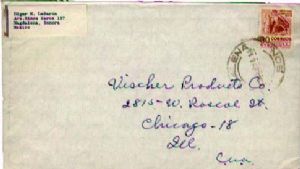 Edgar K. Laderon
Ave. Elena Garza 137
Magdalena, Sonora
Mexico
Vischer Products Co.
2815-W. Roscoe St.
Chicago-18
Ill.